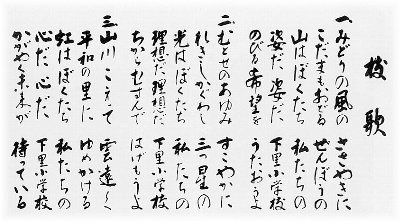 校歌
一、みどりの風の ささやきに
こだまもおどる ぜんぼうの
山はぼくたち 私たちの
姿だ 姿だ 下里小学校
のびる希望を うたおうよ
二、むとせのあゆみ すこやかに
れきしかぐわし 三つ星の
光はぼくたち 私たちの
理想だ理想だ 下里小学校
ちからむすんで はげもうよ
三、山川こえて 雲遠く
平和の里に ゆめかける
虹はぼくたち 私たちの
心だ 心だ 下里小学校
かがやく未来が 待っている